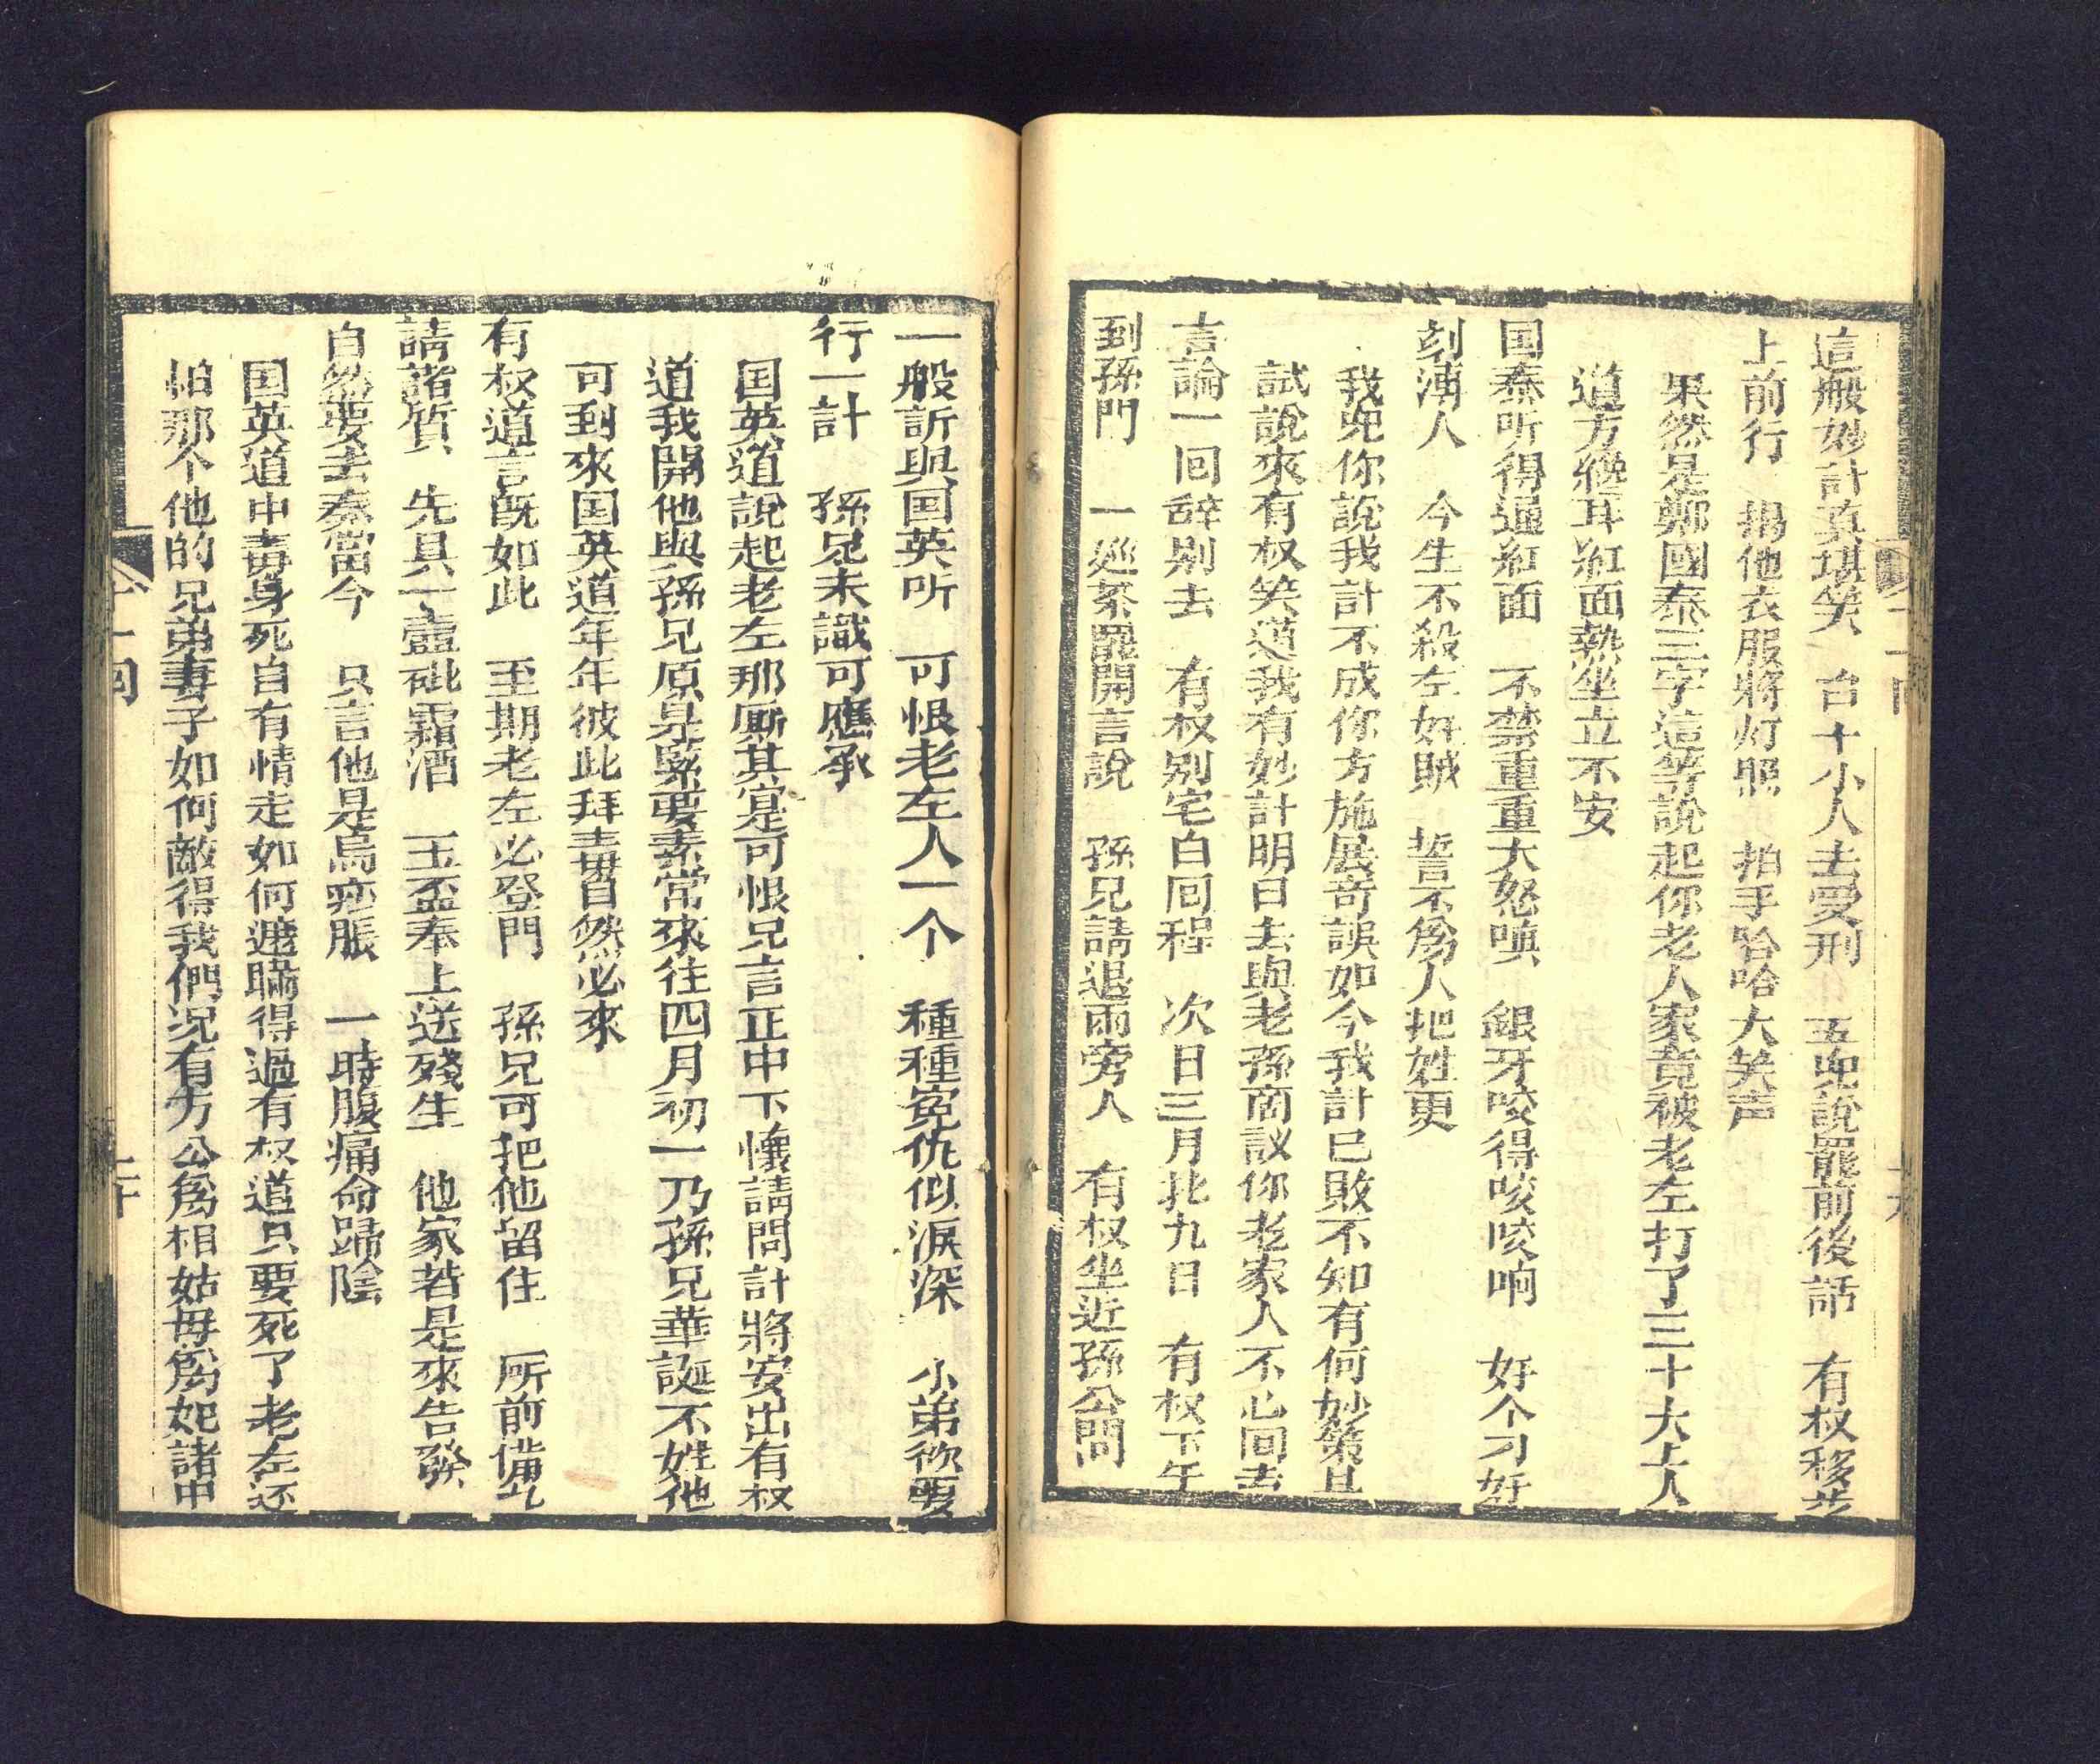 這般妙計真堪笑 台十小人去受刑 五兜說罷前後話 有权移步
上前行 揭他衣服將灯照 拍手哈哈大笑声
果然是鄭國泰三字這等說起你老人家竟被老左打了三十大上人
道方纔耳紅面熱坐立不安
国泰听得通紅面 不禁重重大怒嗔 銀牙咬得咬咬响 好个刁奸
刻溥人 今生不殺左奸賊 誓不爲人把姓更
我兜你說我計不成你方施展奇謨如今我計已敗不知有何妙策且
試說來有权笑道我有妙計明日去與老孫商議你老家人不必回去
言論一回辞别去 有权别宅自回程 次日三月卄九日 有权下午
到孫門 一廵茶罷開言說 孫兄請退兩旁人 有权坐近孫公問
一般訴與国英听 可恨老左人一个 種種寃仇似淚深 小弟欲要
行一計 孫兄未識可應承
国英道說起老左那厮其寔可恨兄言正中下懷請問計將安出有权
道我開他與孫兄原是緊要素常來往四月初一乃孫兄華誕不姓他
可到來国英道年年彼此拜壽自然必來
有权道言既如此 至期老左必登門 孫兄可把他留住 所前備此
請諸質 先具一壼砒霜酒 玉盃奉上送殘生 他家若是來告發
自然要去奏當今 只言他是烏痧脹 一時腹痛命歸陰
国英道中毒身死自有情走如何遮瞞得過有权道只要死了老左还
怕那个他的兄弟妻子如何敵得我們况有方公爲相姑母爲妃諸中
二十